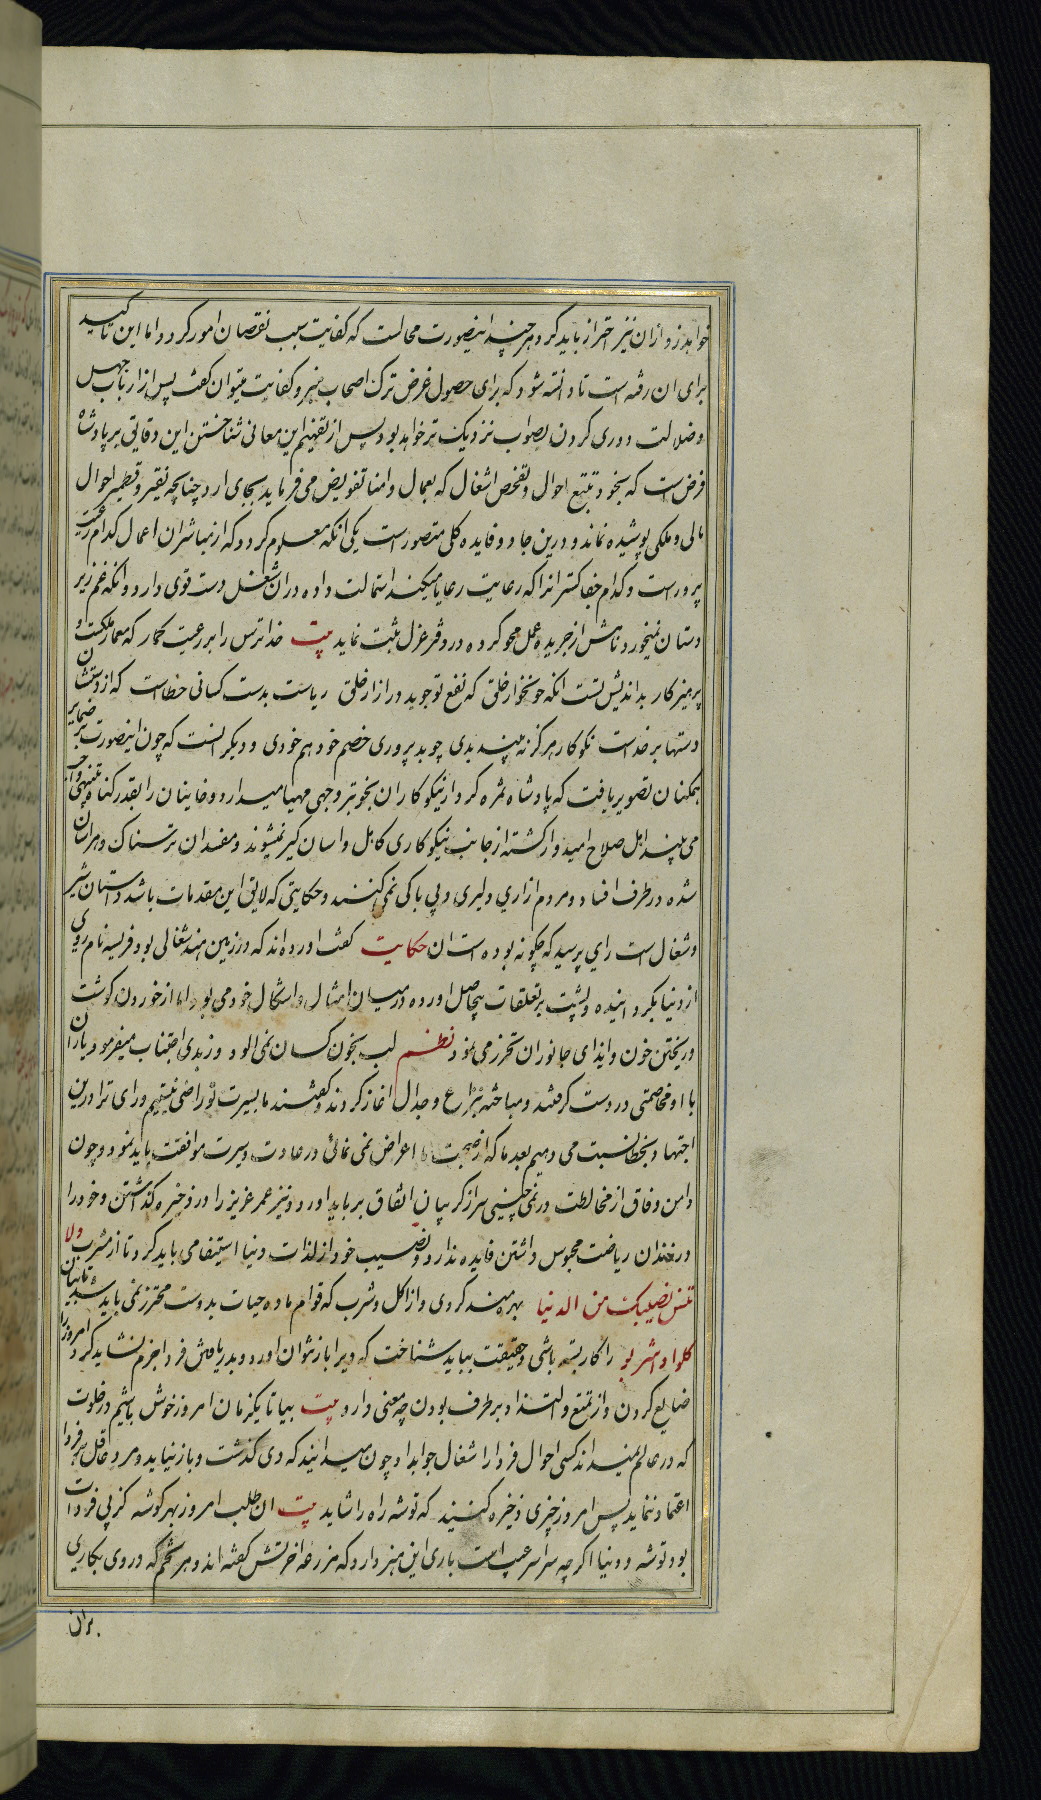 خواهد زد ازان نیز احتراز باید کرد و هر چند اینصورت محالست که کفایت سبب نقصان امور گردد اما این تاکید
برای ان رفته است تا دانسته شود که برای حصول غرض ترک اصحاب هنر و کفایت میتوان گفت پس از ارباب جهل
و ضلالت دوری کردن بصواب نزدیک تر خواهد بود پس از تفهیم این معانی شناختن این دقایق بر پادشاه
فرض است که بخود تتبع احوال و تفحص اشغال که بعمال و امنا تفویض می فرماید بجای ارد چنانچه نقیر و قطمیر احوال
مالی و ملکی پوشیده نماند و درین جا دو فایده کلی متصور است یکی انکه معلوم گردد که از مباشران اعمال کدام رعیت
پرور است و کدام جفا گستر انرا که رعایت رعایا میکند استمالت داده دران شغل دست قوی دارد و انکه غم زیر
دستان نمیخورد نامش از جریده عمل محو کرده در دفتر عزل ثبت نماید بیت خدا ترس را بر رعیت گمار که معمار ملکست و
پرهیزکار بد اندیش تست انکه خونخوار خلق که نفع تو جوید در ازار خلق ریاست بدست کسانی خطاست که از دستشان
دستها بر خداست نکو کار هرگز نه بیند بدی چو بد پروری خصم خود هم خودی و دیگر انست که چون اینصورت بر ضمایر
همگنان تصویر یافت که پادشاه ثمره کردار نیکو کاران بخوبتر وجهی مهیا میدارد و خاینان را بقدر گناه تنبیهی واجب
می بیند اهل صلاح امیدوار گشته از جانب نیکو کاری کاهل و اسان گیر نمیشوند و مفسدان ترسناک و هراسان
شده در طرف افساد و مردم ازاری دلیری و بی باکی نمی کنند و حکایتی که لایق این مقدمات باشد داستان شیر
و شغال است رای پرسید که چگونه بوده است ان حکایت گفت اورده اند که در زمین هند شغالی بود فریسه نام روی
از دنیا بگردانیده و پشت بر تعلقات بیحاصل اورده در میان امثال و اشکال خود می بود اما از خوردن گوشت
و ریختن خون و ایذای جانوران تحرز می نمود نظم لب بخون کسان نمی الود وز بدی اجتناب میفرمود یاران
با او مخاصمتی در دست گرفتند و مباحثه بنزاع و جدال اغاز کردند و گفتند ما بسیرت تو راضی نیستیم و رای ترا درین
اجتهاد بخطا نسبت می دهیم بعد ما که از صحبت ما اعراض نمی نمائی در عادت و سیرت موافقت باید نمود و چون
دامن وفاق از مخالطت در نمی چینی سر از گریبان اتفاق بر باید اورد و نیز عمر عزیز را در ذخیره گذشتن و خود را
در زندان ریاضت محبوس داشتن فایده ندارد و نصیب خود از لذات دنیا استیفا می باید کرد تا از مشرب ولا
تنس نصیبک من الدنیا بهره مند گردی و از اکل و شرب که قوام ماده حیات بدوست محترز نمی باید شد تا بیان
کلوا و اشربوا را کار بسته باشی و بحقیقت بباید شناخت که دی را باز نتوان اورد و بدریافتن فردا جزم نشاید کرد امروز را
ضایع کردن و از تمتع و التذاذ بر طرف بودن چه معنی دارد بیت بیا تا یکزمان امروز خوش باشیم در خلوت
که در عالم نمیداند کسی احوال فردا را شغال جوابداد چون میدانید که دی گذشت و باز نیاید و مرد عاقل بر فردا
اعتماد ننماید پس امروز چیزی ذخیره کنید که توشه راه را شاید بیت ان طلب امروز بهر گوشه کز پی فردات
بود توشه و دنیا اگر چه سراسر عیب است باری این هنر دارد که مزرعه اخرتش گفته اند و هر تخم که در وی بکاری
بران